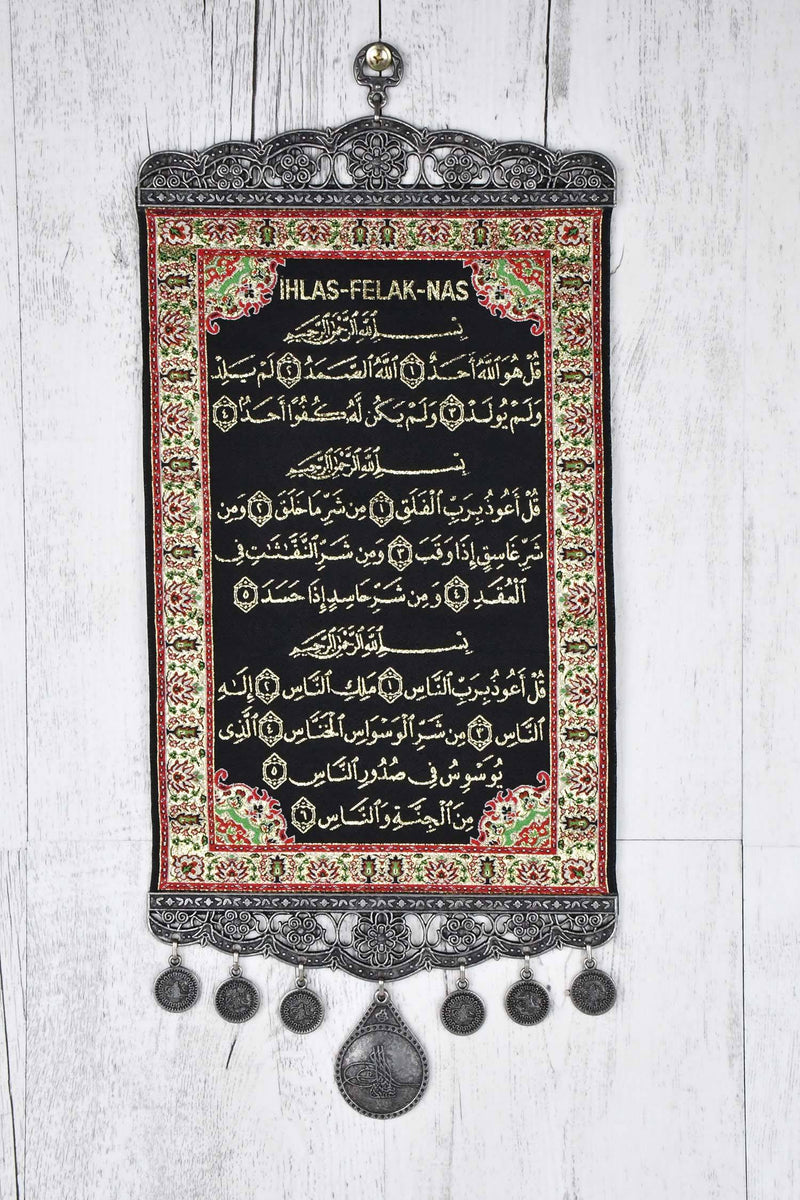 İHLAS-FELAK-NAS
بِسْمِ اللَّهِ الرَّحْمَٰنِ الرَّحِيمِ
قُلْ هُوَ اللَّهُ أَحَدٌ ﴿١﴾ اللَّهُ الصَّمَدُ ﴿٢﴾ لَمْ يَلِدْ
وَلَمْ يُولَدْ ﴿٣﴾ وَلَمْ يَكُن لَّهُ كُفُوًا أَحَدٌ ﴿٤﴾
بِسْمِ اللَّهِ الرَّحْمَٰنِ الرَّحِيمِ
قُلْ أَعُوذُ بِرَبِّ الْفَلَقِ ﴿١﴾ مِن شَرِّ مَا خَلَقَ ﴿٢﴾ وَمِن
شَرِّ غَاسِقٍ إِذَا وَقَبَ ﴿٣﴾ وَمِن شَرِّ النَّفَّٰثَٰتِ فِى
الْعُقَدِ ﴿٤﴾ وَمِن شَرِّ حَاسِدٍ إِذَا حَسَدَ ﴿٥﴾
بِسْمِ اللَّهِ الرَّحْمَٰنِ الرَّحِيمِ
قُلْ أَعُوذُ بِرَبِّ النَّاسِ ﴿١﴾ مَلِكِ النَّاسِ ﴿٢﴾ إِلَٰهِ
النَّاسِ ﴿٣﴾ مِن شَرِّ الْوَسْوَاسِ الْخَنَّاسِ ﴿٤﴾ الَّذِى
يُوَسْوِسُ فِى صُدُورِ النَّاسِ ﴿٥﴾
مِنَ الْجِنَّةِ وَالنَّاسِ ﴿٦﴾